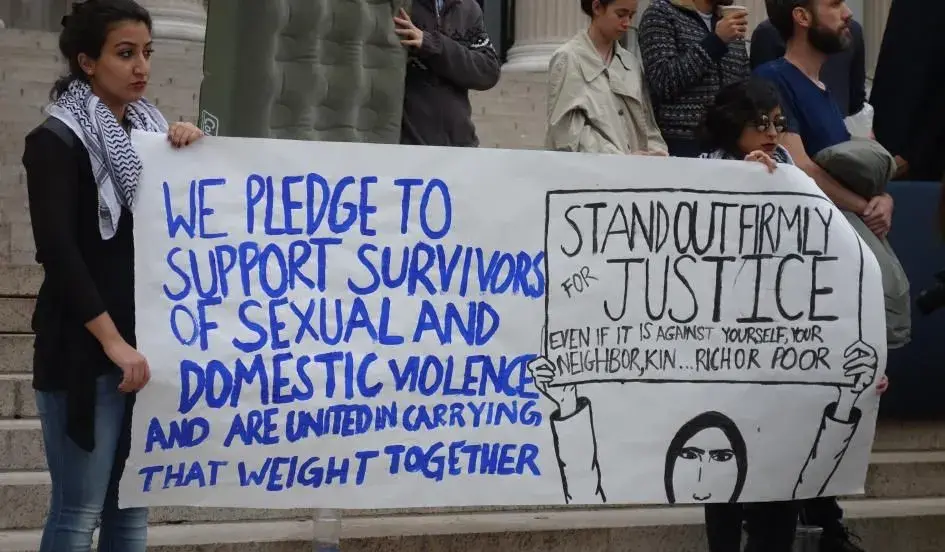 WE PLEDGE TO
SUPPORT SURVIVORS
OF SEXUAL AND
DOMESTIC VIOLENCE
AND ARE UNITED IN CARRYING
THAT WEIGHT TOGETHER
STAND OUT FIRMLY
FOR JUSTICE
EVEN IF IT IS AGAINST YOURSELF, YOUR
NEIGHBOR, KIN... RICH OR POOR